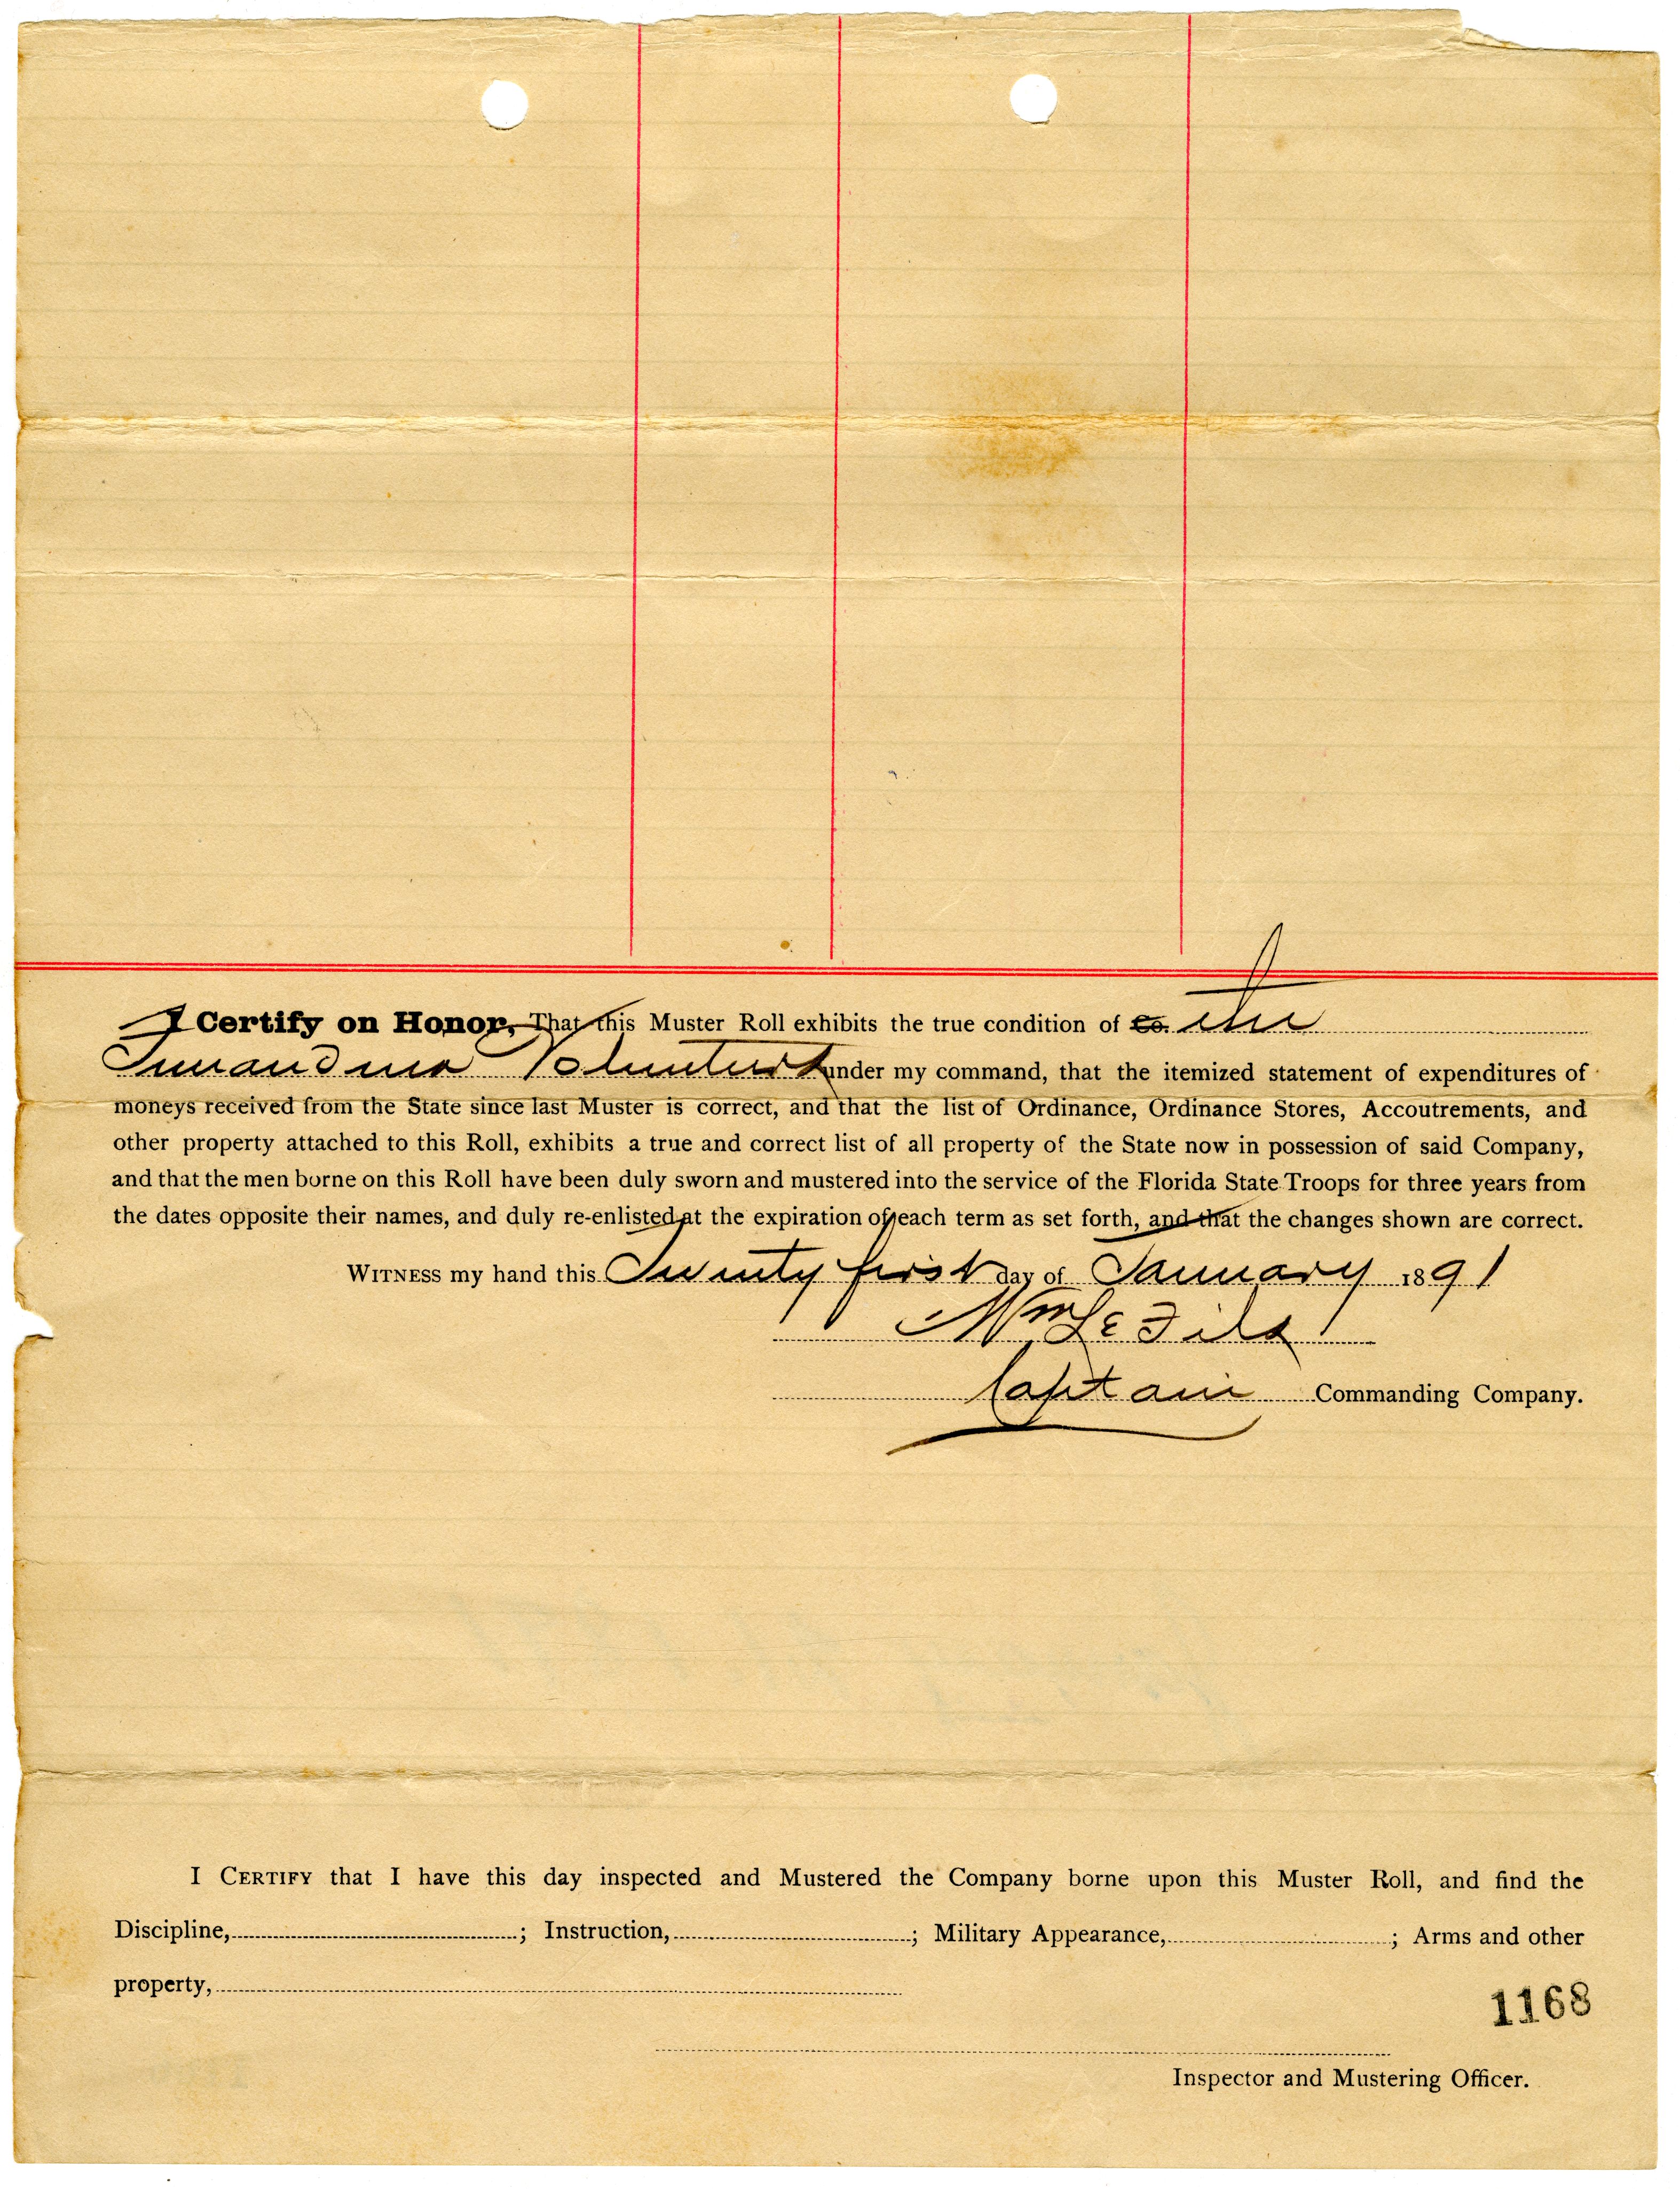 I Certify on Honor, That this Muster Roll exhibits the true condition of Co. the
Fernandina Volunteers under my command, that the itemized statement of expenditures of
moneys received from the State since last Muster is correct, and that the list of Ordinance, Ordinance Stores, Accoutrements, and
other property attached to this Roll, exhibits a true and correct list of all property of the State now in possession of said Company,
and that the men borne on this Roll have been duly sworn and mustered into the service of the Florida State Troops for three years from
the dates opposite their names, and duly re-enlisted at the expiration of each term as set forth, and that the changes shown are correct.
WITNESS my hand this Twenty first day of January 1891
Wm Le Fils
Captain Commanding Company.
I CERTIFY that I have this day inspected and Mustered the Company borne upon this Muster Roll, and find the
Discipline, ; Instruction, ; Military Appearance, ; Arms and other
property,
1168
Inspector and Mustering Officer.